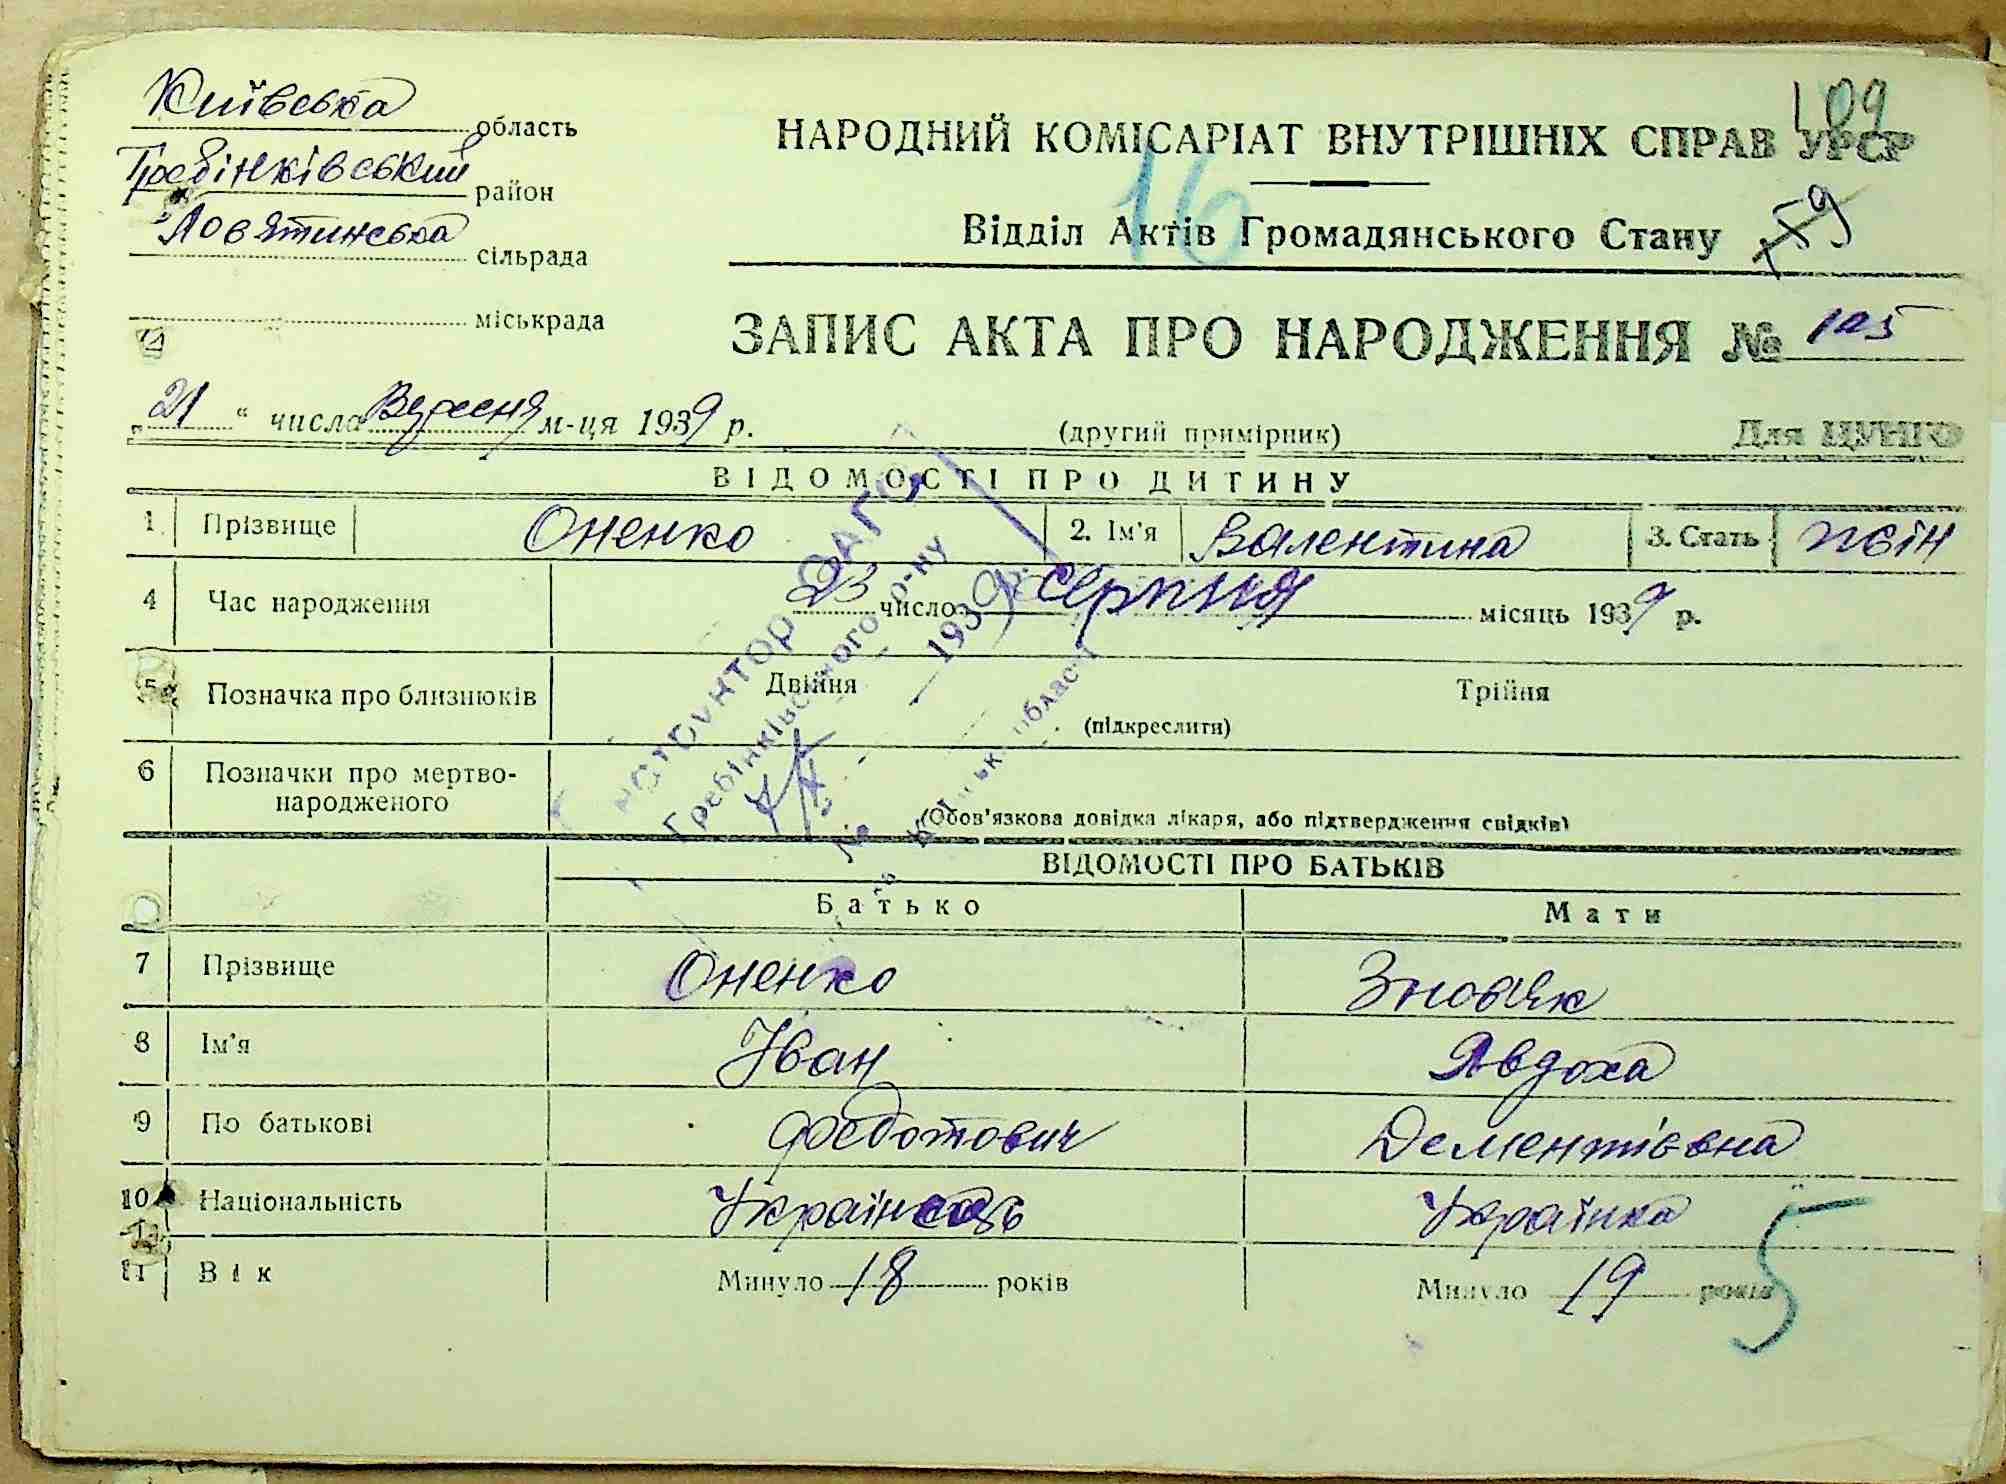 Київська область
109
НАРОДНИЙ КОМІСАРІАТ ВНУТРІШНІХ СПРАВ УРСР
Гребінківський район
16
Лов'ятинська сільрада
Відділ Актів Громадянського Стану 59
міськрада
ЗАПИС АКТА ПРО НАРОДЖЕННЯ № 105
„21“ числа Вересня м-ця 1939 р. (другий примірник) Для ЦУНГО
ВІДОМОСТІ ПРО ДИТИНУ
1 Прізвище Оненко 2. Ім'я Валентина 3. Стать жін
4 Час народження 23 число серпня місяць 1939 р.
5 Позначка про близнюків Двійня Трійня
(підкреслити)
6 Позначки про мертво-
народженого
(Обов'язкова довідка лікаря, або підтвердження свідків)
ЗАГС
Гребінківського р-ну
області
1939 р.
№
ВІДОМОСТІ ПРО БАТЬКІВ
Батько Мати
7 Прізвище Оненко Знов'як
8 Ім'я Іван Явдоха
9 По батькові Федотович Дементієвна
10 Національність Українець Українка
11 Вік Минуло 18 років Минуло 19 років
5